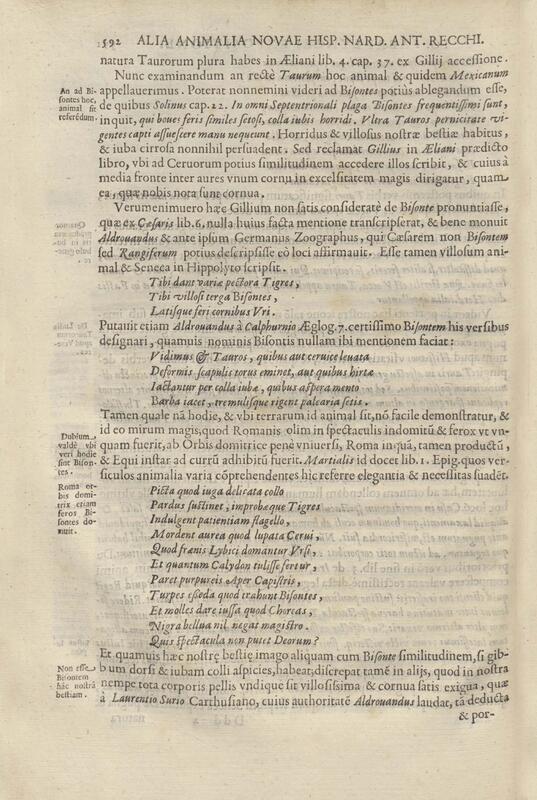 592 ALIA ANIMALIA NOVAE HISP. NARD. ANT. RECCHI.
natura Taurorum plura habes in Æliani lib. 4. cap. 37. ex Gillij accessione.
Nunc examinandum an rectè Taurum hoc animal & quidem Mexicanum
An ad Bisontes hoc, animal sit referẽdum.
appellauerimus. Poterat nonnemini videri ad Bisontes potiùs ablegandum esse,
de quibus Solinus cap. 22. In omni Septentrionali plaga Bisontes frequentissimi sunt,
inquit, qui boues feris similes setosi, colla iubis horridi. Vltra Tauros pernicitate vigentes
capti assuescere manu nequeunt. Horridus & villosus nostræ bestiæ habitus,
& iuba cirrosa nonnihil persuadent. Sed reclamat Gillius in Æliani prædicto
libro, vbi ad Ceruorum potius similitudinem accedere illos scribit, & cuius à
media fronte inter aures vnum cornu in excelsitatem magis dirigatur, quam
ea, quæ nobis nota sunt cornua.
Verumenimuero hæc Gillium non satis consideratè de Bisonte pronuntiasse,
quæ ex Cæsaris lib. 6. nulla huius facta mentione transcripserat, & bene monuit
Aldrouandus & ante ipsum Germanus Zoographus, qui Cæsarem non Bisontem
sed Rangiferum potius descripsisse eo loci affirmauit. Esse tamen villosum animal
& Seneca in Hippolyto scripsit.
Tibi dant variæ pectora Tigres,
Tibi villosi terga Bisontes,
Latisque feri cornibus Vri.
Putauit etiam Aldrouandus à Calphurnio Æglog. 7. certissimo Bisontem his versibus
designari, quamuis nominis Bisontis nullam ibi mentionem faciat:
Vidimus & Tauros, quibus aut ceruice leuata
Deformis scapulis torus eminet, aut quibus hirtæ
Iactantur per colla iubæ, quibus aspera mento
Barba iacet, tremulisque rigent palearia setis.
Tamen quale nã hodie, & vbi terrarum id animal sit, nõ facile demonstratur, &
Dubium valdè vbi veri hodie sint Bisontes.
id eo mirum magis, quod Romanis olim in spectaculis indomitũ & ferox vt vnquam
fuerit, ab Orbis domitrice penè vniuersi, Roma inquã, tamen productũ,
& Equi instar ad currũ adhibitũ fuerit. Martialis id docet lib. 1. Epig. quos versiculos
animalia varia cõprehendentes hic referre elegantia & necessitas suadẽt.
Roma orbis domitrix etiam feros Bisontes domuit.
Picta quod iuga delicata collo
Pardus sustinet, improbæque Tigres
Indulgent patientiam flagello,
Mordent aurea quod lupata Cerui,
Quod frænis Lybici domantur Vrsi,
Et quantum Calydon tulisse fertur,
Paret purpureis Aper Capistris,
Turpes esseda quod trahunt Bisontes,
Et molles dare iussa quod Choreas,
Nigra bellua nil negat magistro.
Quis spectacula non putet Deorum?
Et quamuis hæc nostrę bestię imago aliquam cum Bisonte similitudinem, si gibbum
Non esse Bisontem hãc nostrã bestiam.
dorsi & iubam colli aspicies, habeat, discrepat tamẽ in alijs, quod in nostra
nempe tota corporis pellis vndique sit villosissima & cornua satis exigua, quæ
à Laurentio Surio Carthusiano, cuius authoritatẽ Aldrouandus laudat, tã deducta
& por-